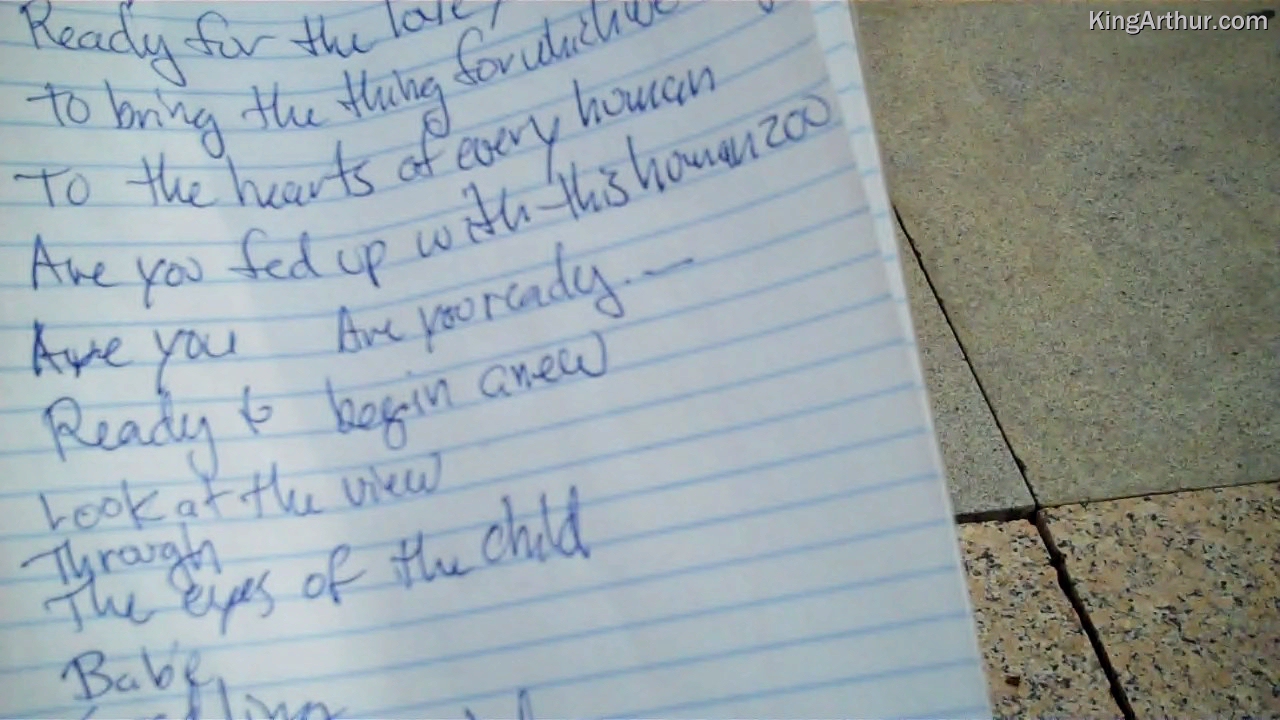 KingArthur.com
Ready for the love,
to bring the thing for which we
To the hearts of every human
Are you fed up with this human zoo
Are you Are you ready.—
Ready to begin anew
Look at the view
Through
The eyes of the child
Babe